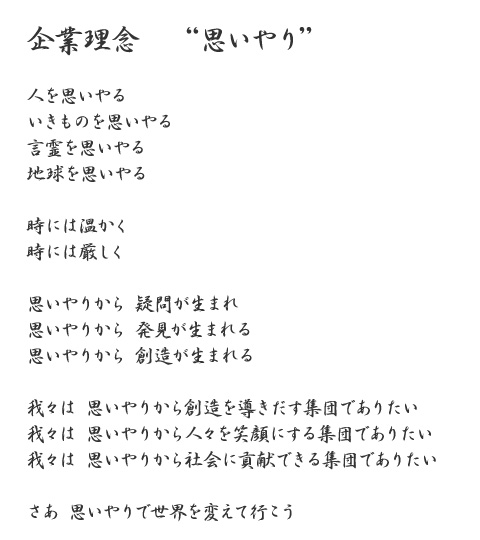 企業理念　“思いやり”
人を思いやる
いきものを思いやる
言霊を思いやる
地球を思いやる
時には温かく
時には厳しく
思いやりから 疑問が生まれ
思いやりから 発見が生まれる
思いやりから 創造が生まれる
我々は 思いやりから創造を導きだす集団でありたい
我々は 思いやりから人々を笑顔にする集団でありたい
我々は 思いやりから社会に貢献できる集団でありたい
さあ 思いやりで世界を変えて行こう